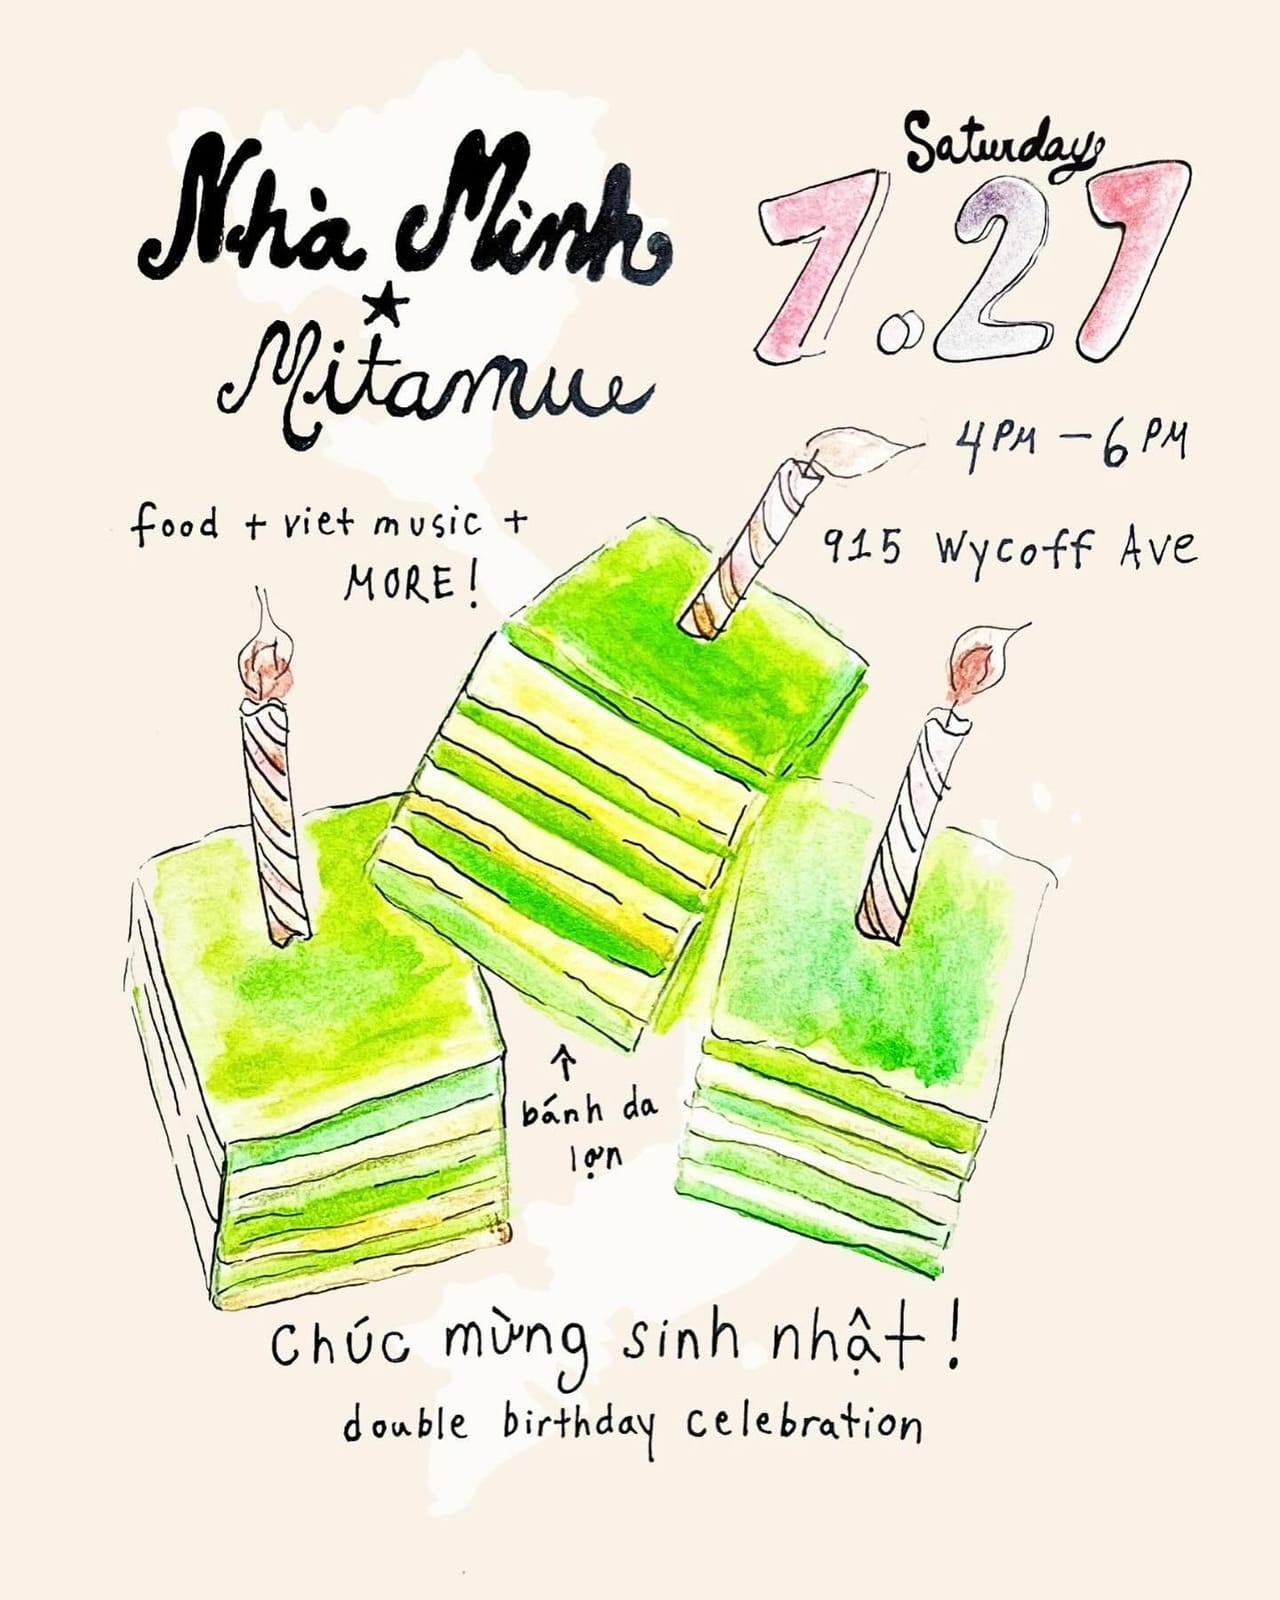 Nhà Mình
★
Mitamue
Saturday
7.27
4PM - 6PM
915 Wycoff Ave
food + viet music +
MORE!
↑
bánh da
lợn
chúc mừng sinh nhật!
double birthday celebration